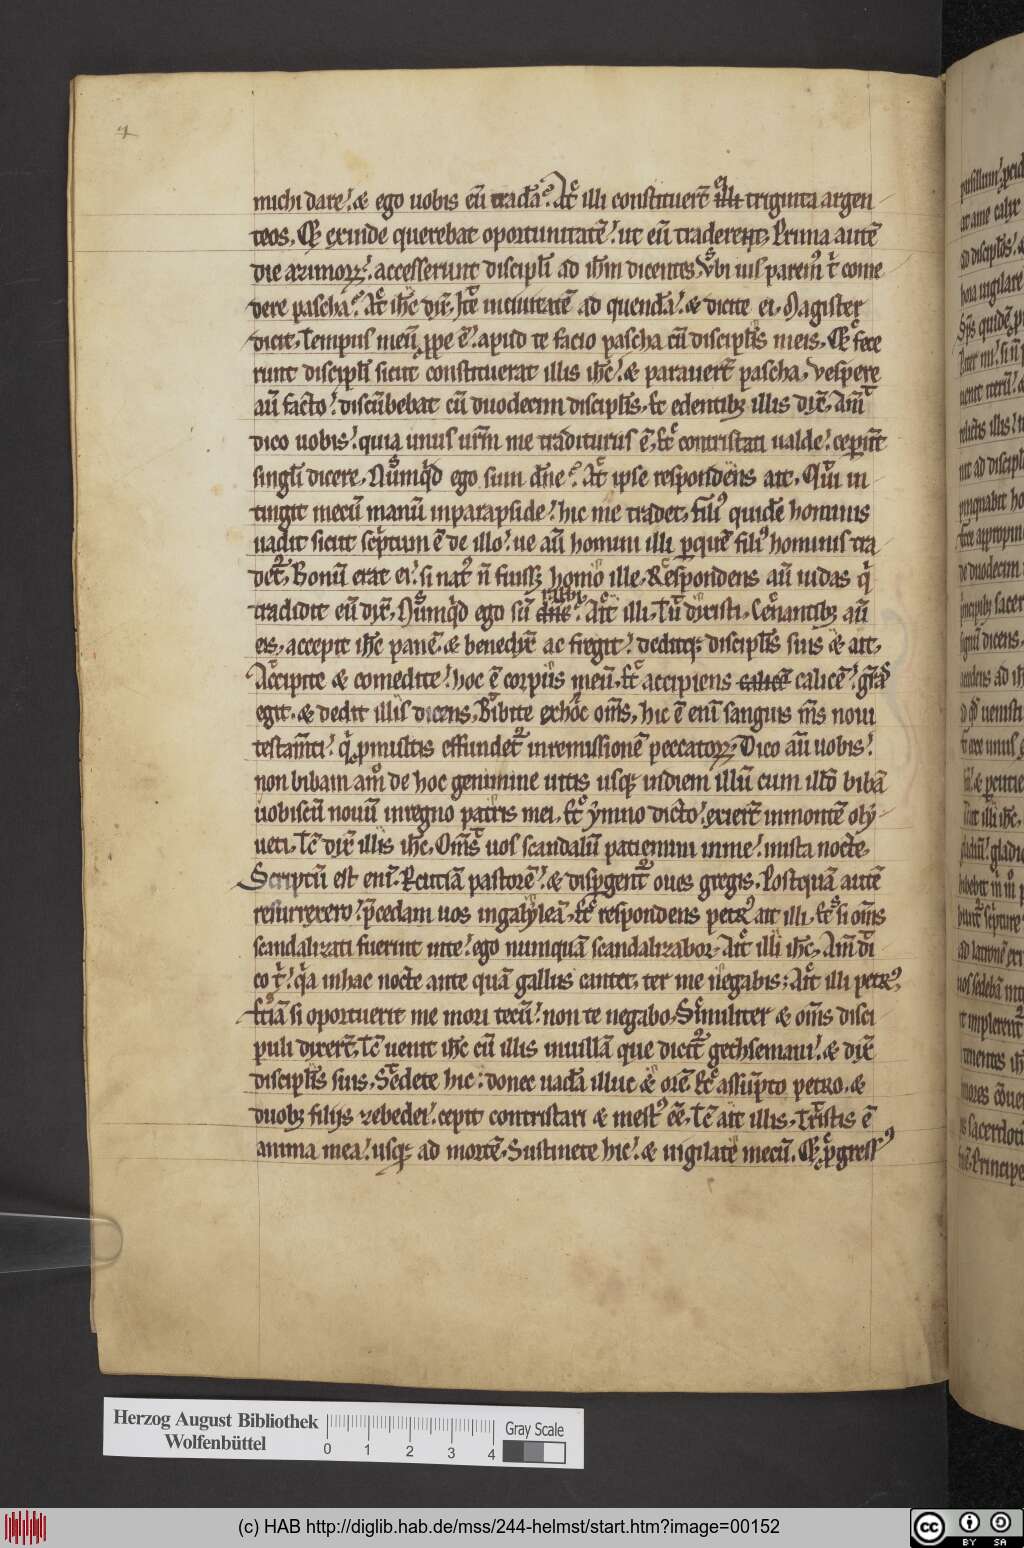 michi dare. ⁊ ego uobis eū tradā. At illi constituert̄ illi triginta argen
teos. Et exinde querebat oportunitatē. ut eū traderent. Prima autē
die azimoꝝ. accesserunt discipl̄i ad ih̄m dicentes. Vbi uis parem᷒ t̄ come
dere pascha. At ih̄c dix̄. Ite inciuitatē ad quendā. ⁊ dicite ei. Magister
dicit. Tempus meū ꝓpe ē. apud te facio pascha cū discipl̄is meis. Et fece
runt discipl̄i sicut constituerat illis ih̄c. ⁊ parauert̄ pascha. Vespere
aū facto. discūbebat cū duodecim discipl̄is. Et edentibꝫ illis dix̄. Am̄
dico uobis. quia unus ur̄m me traditurus ē. Et contristati ualde. ceper̄t
singl̄i dicere. Nūmqd ego sum dn̄e. At ipse respondens ait. Qui in
tingit mecū manū inparapside. hic me tradet. fili᷒ quidē hominis
uadit sicut scptum ē de illo. ue aū homini illi ꝑquē fili᷒ hominis tra
det᷒. Bonū erat ei. si nat᷒ n̄ fuissꝫ homo ille. Respondens aū iudas q
tradidit eū dix̄. Nūmqd ego sū dn̄s rabbi. Ait illi. Tu dixisti. Cenantibꝫ aū
eis. accepit ih̄c panē. ⁊ benedix̄ ac fregit. deditqꝫ discipl̄is suis ⁊ ait.
Accipite ⁊ comedite. hoc ē corpus meū. Et accipiens calicē calicē. gr̄as
egit. ⁊ dedit illis dicens. Bibite exhoc om̄s. hic ē eni sanguis m̄s noui
testam̄ti. q ꝓmultis effundet᷒ inremissionē peccatoꝝ. Dico aū uobis.
non bibam am̊ de hoc genimine uitis usqꝫ indiem illū cum illō bibā
uobiscū nouū inregno patris mei. Et ẏmno dicto. exiert̄ inmontē oly
ueti. Tc̄ dix̄ illis ih̄c. Om̄s uos scandalū patiemini inme. inista nocte.
Scriptū est eni. Rcutiā pastorē. ⁊ dispgent᷒ oues gregis. Postquā autē
resurrexero. p̄cedam uos ingalyleā. Et respondens petꝰ ait illi. Et si om̄s
scandalizati fuerint inte. ego numquā scandalizabor. Ait illi ih̄c. Am̄ di
co t̄. qa inhac nocte ante quā gallus cantet. ter me negabis. Ait illi petꝰ.
Etiā si oportuerit me mori tecū. non te negabo. Similiter ⁊ om̄s disci
puli dixert̄. Tc̄ uenit ih̄c cū illis inuillā que dicit᷒ gethsemani. ⁊ dix̄
discipl̄is suis. Sedete hic. donec uadā illuc ⁊ orē. Et assūpto petro. ⁊
duobꝫ filijs zebedei. cepit contristari ⁊ mest᷒ eē. Tc̄ ait illis. Tristis ē
anima mea. usqꝫ ad mortē. Sustinete hic. ⁊ uigilate mecū. Et ꝓgress᷒
Herzog August Bibliothek
Wolfenbüttel
0 1 2 3 4
Gray Scale
(c) HAB http://diglib.hab.de/mss/244-helmst/start.htm?image=00152
cc BY SA